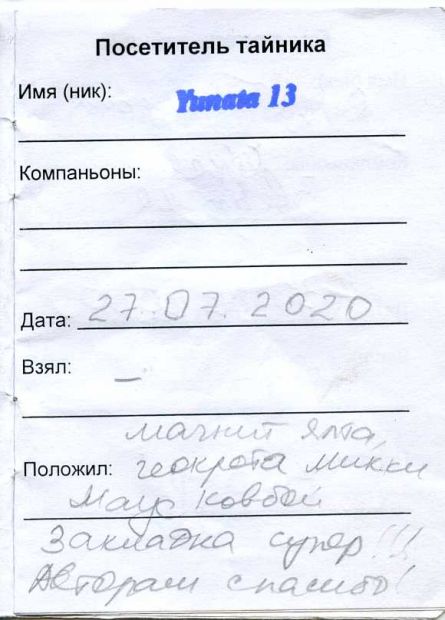 Посетитель тайника
Имя (ник): Yunata 13
Компаньоны:
Дата: 27.07.2020
Взял: —
магнит Ялта,
Положил: геокрота Микки
Маус ковбой
Закладка супер!!!
Авторам спасибо!